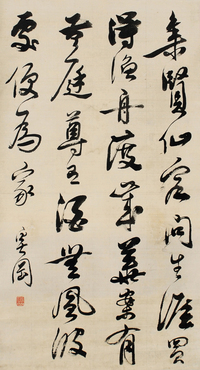 集賢仙客問生涯買
得漁舟度歲華案有
黃庭尊有酒無風波
處便為家
岡